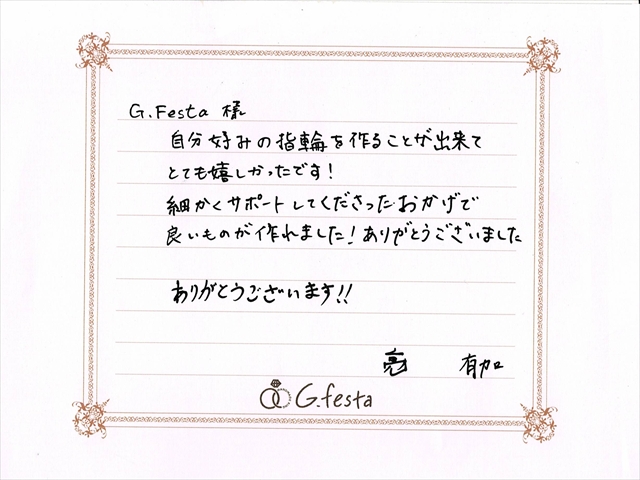 G.Festa 様
自分好みの指輪を作ることが出来て
とても嬉しかったです!
細かくサポートしてくださったおかげで
良いものが作れました!ありがとうございました
ありがとうございます!!
亮 有加
G.festa